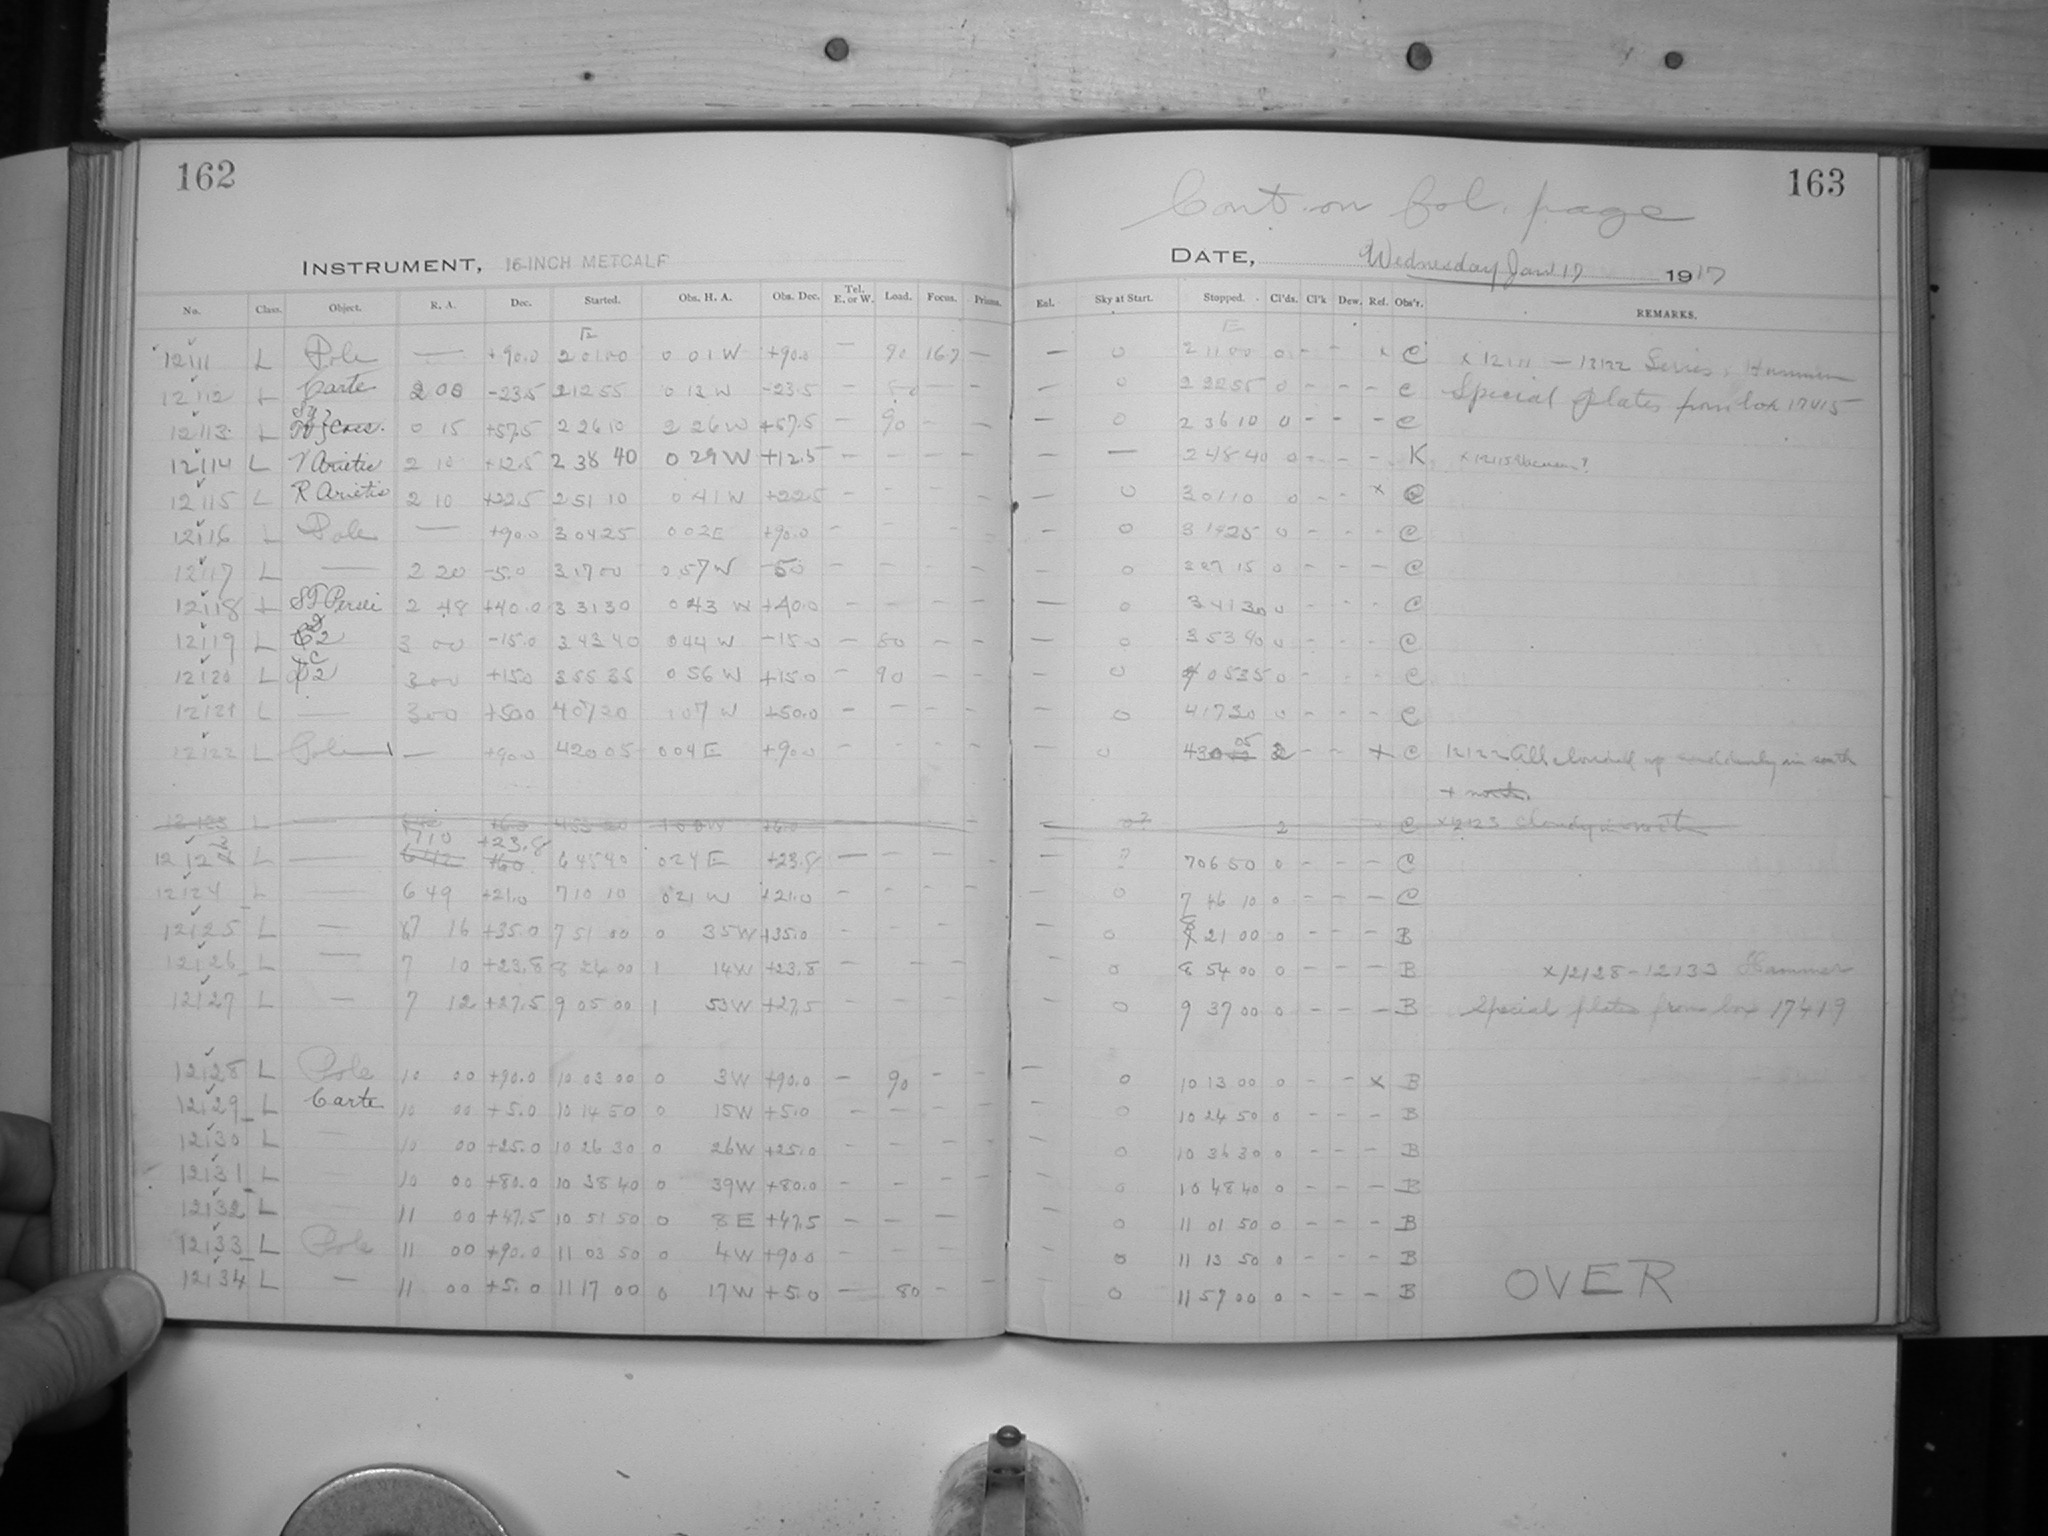 162
163
Cont. on fol. page
INSTRUMENT, 16-INCH METCALF
DATE, Wednesday Jan 17 1917
No. Class. Object. R. A. Dec. Started. Obs. H. A. Obs. Dec. Tel. E. or W. Load. Focus. Prisms. Eml. Sky at Start. Stopped. Cl'ds. Cl'k Dew. Ref. Obs'r. REMARKS.
12111 L Pole — +90.0 2 01 00 0 01 W +90.0 — 90 16.7 — — 0 2 11 00 0 - - x C x 12111 — 12122 Series, Hammer
12112 L Carte 2 00 -23.5 2 12 55 0 13 W -23.5 — 80 — — — 0 2 22 55 0 - - - C Special plates from box 17415
12113 L Cass. 0 15 +57.5 2 26 10 2 26 W +57.5 — 90 - — — 0 2 36 10 0 - - - C
12114 L V Arietis 2 10 +12.5 2 38 40 0 29 W +12.5 — — — — — — 2 48 40 0 - - - K x 12115
12115 L R Arietis 2 10 +22.5 2 51 10 0 41 W +22.5 - - - — — 0 3 01 10 0 - - x C
12116 L Pole — +90.0 3 04 25 0 02 E +90.0 - - - - — 0 3 14 25 0 - - - C
12117 L — 2 20 -5.0 3 17 00 0 57 W -5.0 - - - - — 0 3 27 15 0 - - - C
12118 L ST Persei 2 48 +40.0 3 31 30 0 43 W +40.0 - - - - — 0 3 41 30 0 - - - C
12119 L D2 3 00 -15.0 3 43 40 0 44 W -15.0 — 80 - - — 0 3 53 40 0 - - - C
12120 L C2 3 00 +15.0 3 55 35 0 56 W +15.0 - 90 - - — 0 4 05 35 0 - - - C
12121 L — 3 00 +50.0 4 07 20 1 07 W +50.0 - - - - — 0 4 17 30 0 - - - C
12122 L Pole — +90.0 4 20 05 0 04 E +90.0 - - - - 0 4 30 05 2 - - x C 12122 All clouded up suddenly in south
+ north.
12123 L — +6.0 1 00 W +6.0 0? 2 C x12123 cloudy in north
12123 L — 7 10 +23.8 6 45 40 0 24 E +23.8 — - - - — ? 7 06 50 0 - - - C
12124 L — 6 49 +21.0 7 10 10 0 21 W +21.0 - - - - — 0 7 46 10 0 - - - C
12125 L — 7 16 +35.0 7 51 00 0 35 W +35.0 - - - - - 0 8 21 00 0 - - - B
12126 L — 7 10 +23.8 8 24 00 1 14 W +23.8 - - - - - 0 8 54 00 0 - - - B x12128-12133 Hammer
12127 L — 7 12 +27.5 9 05 00 1 53 W +27.5 - - - - - 0 9 37 00 0 - - - B Special plates from box 17419
12128 L Pole 10 00 +90.0 10 03 00 0 3 W +90.0 - 90 - - — 0 10 13 00 0 - - x B
12129 L Carte 10 00 +5.0 10 14 50 0 15 W +5.0 - - - - - 0 10 24 50 0 - - - B
12130 L — 10 00 +25.0 10 26 30 0 26 W +25.0 - - - - - 0 10 36 30 0 - - - B
12131 L 10 00 +80.0 10 38 40 0 39 W +80.0 - - - - - 0 10 48 40 0 - - - B
12132 L 11 00 +47.5 10 51 50 0 8 E +47.5 - - - - 0 11 01 50 0 - - - B
12133 L Pole 11 00 +90.0 11 03 50 0 4 W +90.0 - - - - 0 11 13 50 0 - - - B
12134 L — 11 00 +5.0 11 17 00 0 17 W +5.0 — 80 - - - 0 11 57 00 0 - - - B
OVER